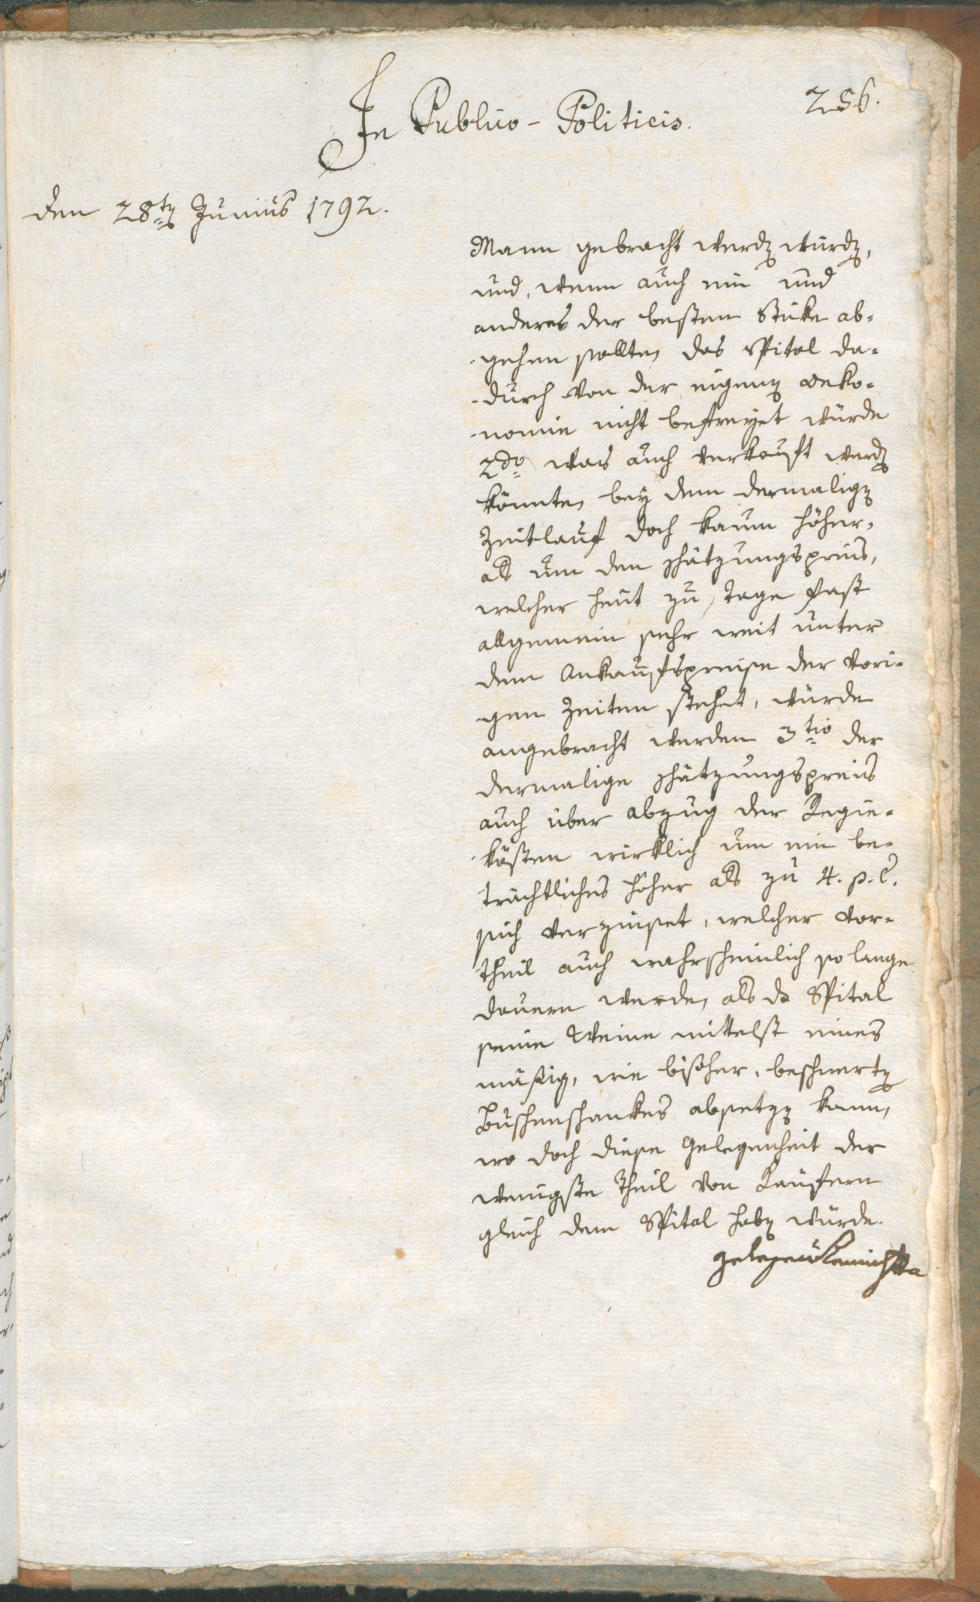 256.
In Publico-Politicis.
den 28ten Junius 1792.
Mann gebracht werden würden,
und, wenn auch ein und
anderes der besten Stüke ab-
gehen sollte, das Spital da-
durch von der eigenen Oeko-
nomie nicht befreyet würde
2do was auch verkauft werden
könnte, bey dem dermaligen
Zeitlauf doch kaum höher,
als um den Schätzungspreis,
welcher heut zu Tage fast
allgemein sehr weit unter
dem Ankaufspreise der vori-
gen Zeiten stehet, würde
angebracht werden 3tio der
dermalige Schätzungspreis
auch über abzug der Regie-
kösten wirklich um ein be-
trächtliches höher als zu 4. p. C.
sich verzinset, welcher Vor-
theil auch wahrscheinlich so lange
dauern werde, als das Spital
seine Weine mittelst eines
mäßig, wie bisher, beschwerten
Buschenschankes absetzen kann,
wo doch diese Gelegenheit der
wenigste Theil von Käufern
gleich dem Spital haben würde.